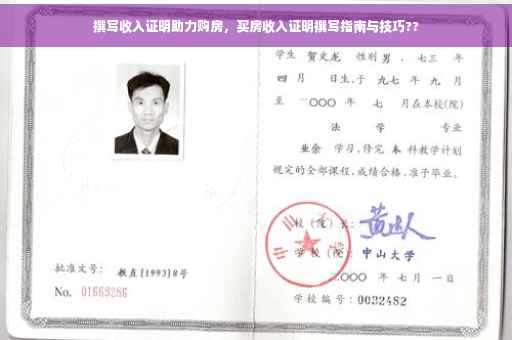 撰写收入证明助力购房，买房收入证明撰写指南与技巧??
学生 贺文龙 性别 男，七三 年
四 月 日生，于 九七 年 九 月
至 二〇〇〇 年 七 月在本校(院)
法 学 专业
业余 学习，修完 本 科教学计划
规定的全部课程，成绩合格，准予毕业。
校（院）长：
学 校（院）：中山大学
二〇〇〇 年 七 月 一 日
学校编号：0032482
批准文号： 教直(1993)8号
No. 01669286